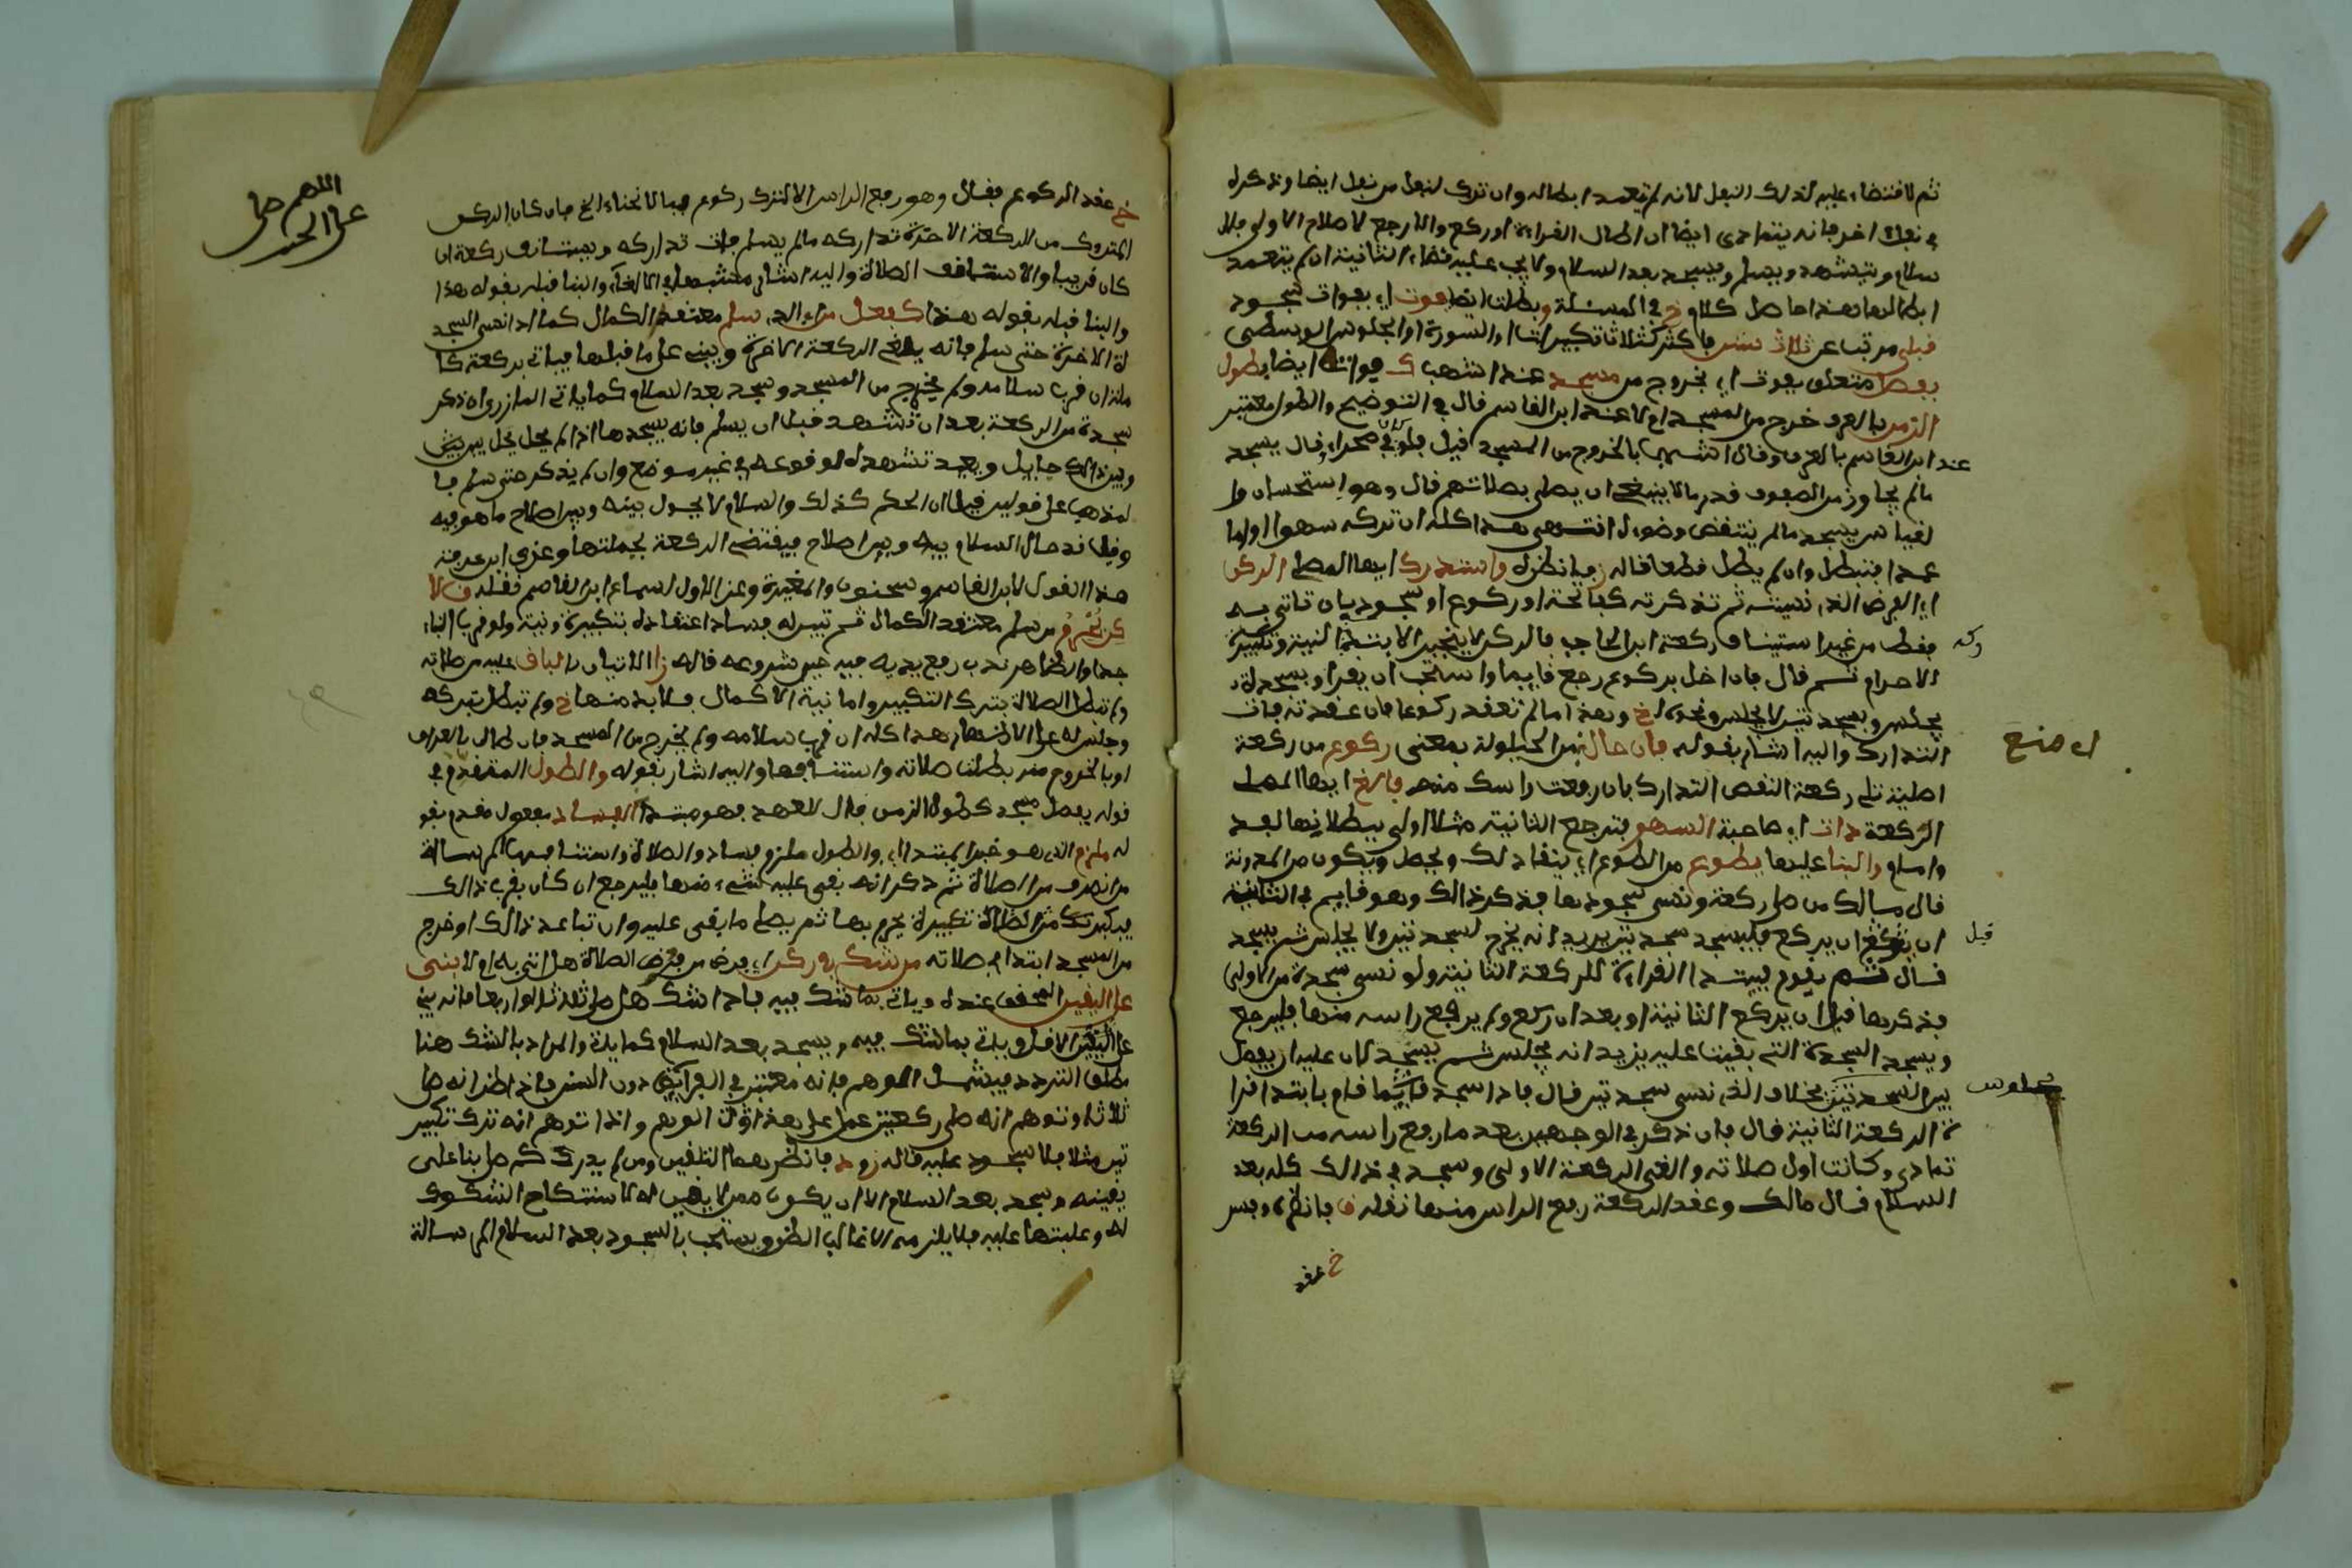 ثم لا قضاء عليه لذلك النفل لأنه لم يتعمد ابطاله وان ترك لنفل من نفل ايضا وذكره
في نفل اخر فانه يتمادى ايضا ان اطال القراءة او ركع والا رجع لاصلاح الاولى بلا
سلام ويتشهد ويسلم ويسجد بعد السلام ولا يجب عليه قضاء الثانية ان لم يتعمد
ابطالها هذا حاصل كلام خ في المسئلة وبطلت ايضا بفوت اي بفوات سجود
قبلي مرتب عن ثلاث سنن فاكثر كثلاث تكبيرات او السورة او الجلوس الوسطى
بفصل متعلق بفوت اي بخروج من مسجد عند اشهب ك فواته ايضا بطول
الزمن بالعرف خرج من المسجد ام لا عند ابن القاسم قال في التوضيح والطول معتبر
عند ابن القاسم بالعرف وقال اشهب بالخروج من المسجد قيل فلو كان في صحراء قال يسجد
ما لم يجاوز من الصفوف قدر ما لا ينبغي ان يصلي بصلاتهم قال وهو استحسان وا
لقياس يسجد ما لم ينتقض وضوءه انتهى هذا كله ان تركه سهوا واما
عمدا فتبطل وان لم يطل قطعا قاله ز فانظره واستدرك ايها المصلي الركن
اي الفرض الذي نسيته ثم تذكرته كفاتحة او ركوع او سجود بان تاتي به
فقط من غير استيناف ركعة ابن الحاجب فالركن لا ينجبر الا بتداركه الا النية وتكبيرة
الاحرام ثم قال فان اخل بركوع رجع قائما واستحب ان يقرأ وبسجدة
يجلس وبسجدتين لا يجلس ونحوه لخ وهذا ما لم تعقد ركوعا فان عقدته فات
التدارك واليه اشار بقوله فان حال من الحيلولة بمعنى ركوع من ركعة
اصلية تلي ركعة النقص التدارك بان رفعت راسك منه فالغ ايها المصلي
الركعة ذات اي صاحبة السهو فترجع الثانية مثلا اولى ببطلانها لفذ
وامام والبنا عليها يطوع من الطوع اي ينقاد لك ويحصل ويكون من المدونة
قال مالك من صلى ركعة ونسي سجودها فذكر ذالك وهو قائم في الثانية
قبل
ان يركع فليسجد سجدتين يريد انه يخر لسجدتين ولا يجلس ثم يسجد
قال ثم يقوم فيبتدا القراءة للركعة الثانية ولو نسي سجدة من الاولى
فذكرها قبل ان يركع الثانية او بعد ان ركع ولم يرفع راسه منها فليرجع
ويسجد السجدة التي بقيت عليه يزيد انه يجلس ثم يسجد لان عليه ان يفصل
بين السجدتين بخلاف الذي نسي سجدتين قال فاذا سجد قام فابتدا قرا
ة الركعة الثانية قال فان ذكر في الوجهين بعد ما رفع راسه من الركعة
تمادى وكانت اول صلاته والغى الركعة الاولى وسجد في ذالك كله بعد
السلام قال مالك وعقد الركعة رفع الراس منها نقله ق فانظره وفسر
خ عقد
اللهم صل
على
خ عقد الركوع فقال وهو رفع الراس الا لترك ركوع فبالانحناء الخ فان كان الركن
المتروك من الركعة الاخيرة تداركه ما لم يسلم فات تداركه ويستانف ركعة ان
كان قريبا والا استانف الصلاة واليه اشار
والبنا قبله بقوله هذا كفعل من اي الذي سلم معتقد الكمال كما اذا نسي السجد
ة الاخيرة حتى سلم فانه يلغي الركعة الاخيرة ويبني على ما قبلها فياتي بركعة كا
ملة ان قرب سلامه ولم يخرج من المسجد وسجد بعد السلام كما ياتي المازري ان ذكر
سجدة من الركعة بعد ان تشهد قبل ان يسلم فانه يسجدها اذا لم يحل بينه
وبين ذالك حايل ويعيد تشهده لوقوعه في غير موضع وان لم يذكر حتى سلم فا
لمذهب على قولين قيل ان الحكم كذلك والسلام لا يحول بينه وبين اصلاح ما هو فيه
وقيل قد حال السلام بينه وبين اصلاح فيقتضي الركعة بجملتها وعزى ابن عرفة
هذا القول لابن القاسم وسحنون والمغيرة وعزا الاول لسماع ابن القاسم نقله ق
من سلم معتقد الكمال ثم تبين له فساد اعتقاده بتكبيرة ونية ولو قرب البناء
جدا والظاهر ندب رفع يديه فيه حين شروعه قاله ز الاتيان بالباقي عليه من صلاته
ولم تبطل الصلاة بترك التكبير واما نية الاكمال فلا بد منها خ ولم تبطل بتركه
وجلس له على الاظهر هذا كله ان قرب سلامه ولم يخرج من المسجد فان طال بالعرف
او بالخروج منه بطلت صلاته واستانفها واليه اشار بقوله والطول المتقدم في
قوله بفصل مسجد كطول الزمن فال للعهد فهو مبتدا الفساد مفعول مقدم بقو
له ملزم الذي هو خبر المبتدا اي والطول ملزم فساد والصلاة واستنافها الرسالة
من انصرف من الصلاة ثم ذكر انه بقي عليه شيء منها فليرجع ان كان بقرب ذالك
تكبيرة يحرم بها ثم يصلي ما بقي عليه وان تباعد ذالك او خرج
من المسجد ابتدا صلاته من شك في ركن اي فرض من فرض الصلاة هل اتى به ام لا بنى
على اليقين المحقق عنده وياتي بما شك فيه فاذا شك هل صلى ثلاثا او اربعا فانه يبني
على اليقين الاقل وياتي بما شك فيه ويسجد بعد السلام كما ياتي والمراد بالشك هنا
مطلق التردد فيشمل الوهم فانه معتبر في الفرائض دون السنن فاذا ظن انه صلى
ثلاثا وتوهم انه صلى ركعتين عمل على هذا الوهم واذا توهم انه ترك تكبير
تين مثلا فلا سجود عليه قاله ز فانظرهما التلقين ومن لم يدرك كم صلى بنا على
يقينه وسجد بعد السلام الا ان يكون ممن لا يقين له لاستنكاح الشكوك
له وغلبتها عليه فلا يلزمه الا غالب الظن ويستحب بالسجود بعد السلام الرسالة